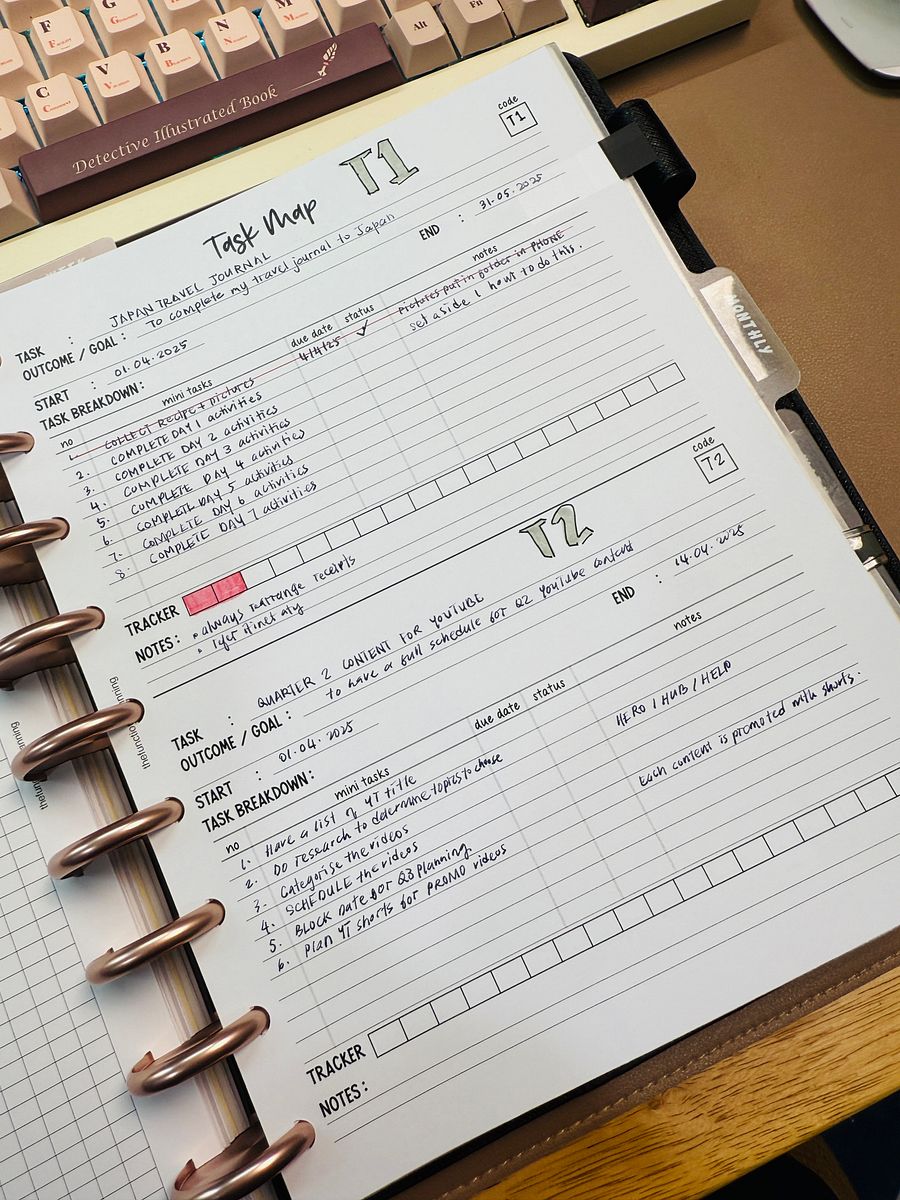 F
G
M
C
V
B
N
Alt
Fn
Detective Illustrated Book
code
T1
T1
Task Map
TASK : JAPAN TRAVEL JOURNAL
OUTCOME / GOAL : To complete my travel journal to Japan
START : 01.04.2025
END : 31.05.2025
TASK BREAKDOWN:
no mini tasks due date status notes
1. COLLECT Recipe + pictures 4/4/25 ✓ pictures put in folder in PHONE
2. COMPLETE DAY 1 activities set aside 1 hour to do this.
3. COMPLETE DAY 2 activities
4. COMPLETE DAY 3 activities
5. COMPLETE DAY 4 activities
6. COMPLETE DAY 5 activities
7. COMPLETE DAY 6 activities
8. COMPLETE DAY 7 activities
TRACKER
NOTES: • always rearrange receipts
•
code
T2
T2
TASK : QUARTER 2 CONTENT FOR YOUTUBE
OUTCOME / GOAL : to have a full schedule for Q2 YouTube content
START : 01.04.2025
END : 14.04.2025
TASK BREAKDOWN:
no mini tasks due date status notes
1. Have a list of YT title HERO / HUB / HELP
2. DO research to determine topics to choose
3. Categorise the videos
4. SCHEDULE the videos Each content is promoted with shorts.
5. BLOCK Date for Q3 Planning.
6. Plan YT shorts for PROMO videos
TRACKER
NOTES:
MONTHLY